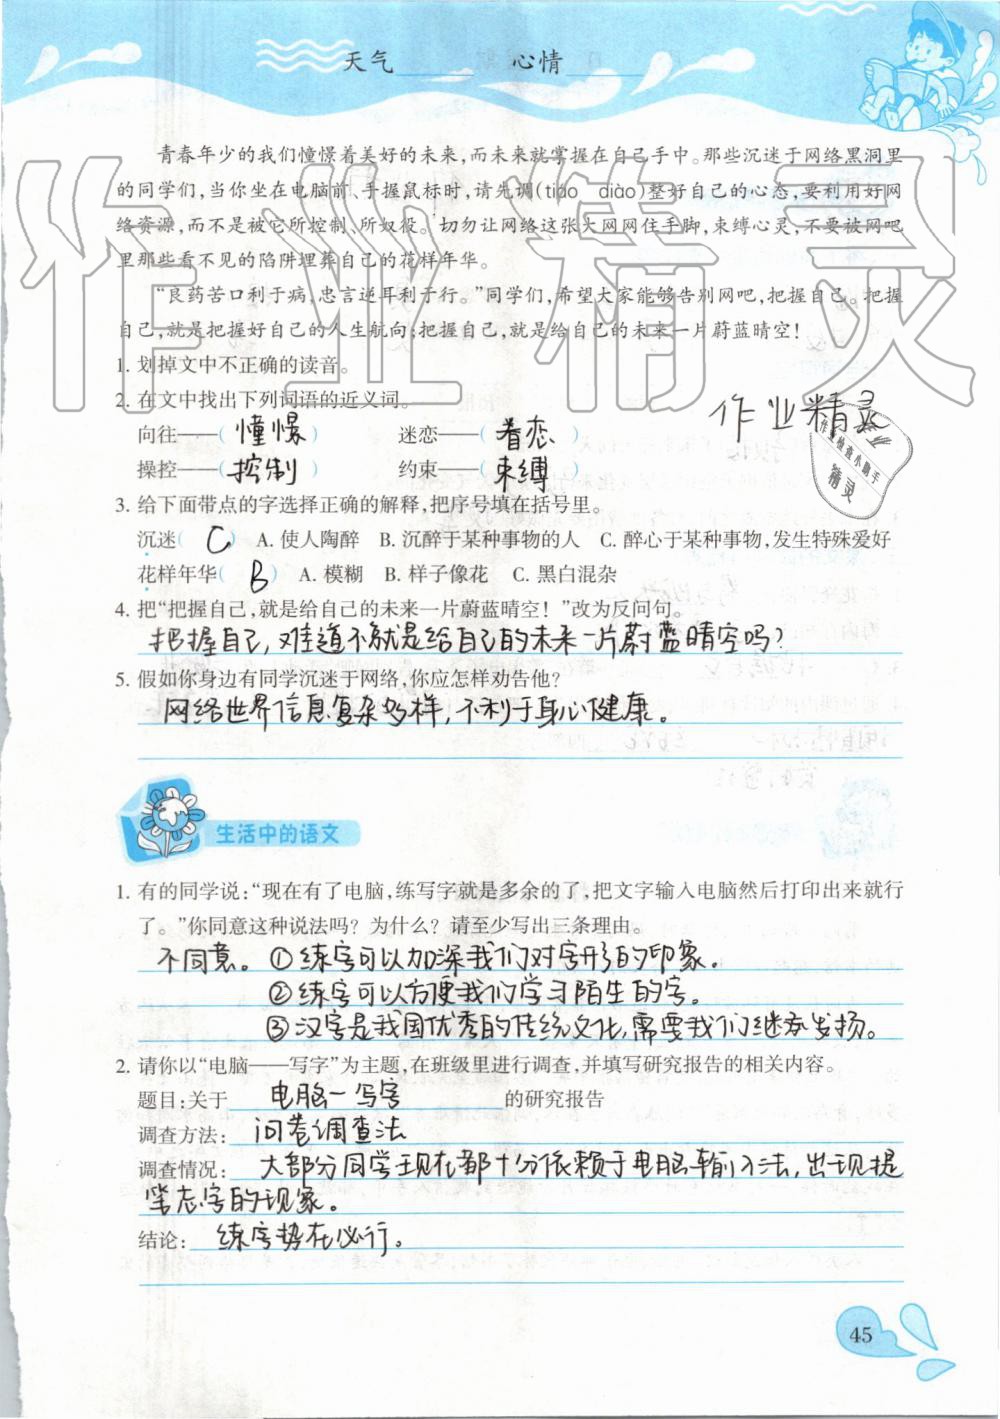 天气 心情
青春年少的我们憧憬着美好的未来,而未来就掌握在自己手中。那些沉迷于网络黑洞里
的同学们,当你坐在电脑前、手握鼠标时,请先调(tiáo diào)整好自己的心态,要利用好网
络资源,而不是被它所控制、所奴役。切勿让网络这张大网网住手脚,束缚心灵,不要被网吧
里那些看不见的陷阱埋葬自己的花样年华。
“良药苦口利于病,忠言逆耳利于行。”同学们,希望大家能够告别网吧,把握自己。把握
自己,就是把握好自己的人生航向;把握自己,就是给自己的未来一片蔚蓝晴空!
1. 划掉文中不正确的读音。
2. 在文中找出下列词语的近义词。
作业精灵
向往——( 憧憬 ) 迷恋——( 着恋 )
操控——( 控制 ) 约束——( 束缚 )
作业检查小助手
精灵
3. 给下面带点的字选择正确的解释,把序号填在括号里。
沉迷( C ) A. 使人陶醉 B. 沉醉于某种事物的人 C. 醉心于某种事物,发生特殊爱好
花样年华( B ) A. 模糊 B. 样子像花 C. 黑白混杂
4. 把“把握自己,就是给自己的未来一片蔚蓝晴空!”改为反问句。
把握自己,难道不就是给自己的未来一片蔚蓝晴空吗?
5. 假如你身边有同学沉迷于网络,你应怎样劝告他?
网络世界信息复杂多样,不利于身心健康。
生活中的语文
1. 有的同学说:“现在有了电脑,练写字就是多余的了,把文字输入电脑然后打印出来就行
了。”你同意这种说法吗?为什么?请至少写出三条理由。
不同意。①练字可以加深我们对字形的印象。
②练字可以方便我们学习陌生的字。
③汉字是我国优秀的传统文化,需要我们继承发扬。
2. 请你以“电脑——写字”为主题,在班级里进行调查,并填写研究报告的相关内容。
题目:关于 电脑一写字 的研究报告
调查方法: 问卷调查法
调查情况: 大部分同学现在都十分依赖于电脑输入法,出现提
笔忘字的现象。
结论: 练字势在必行。
45
作业精灵